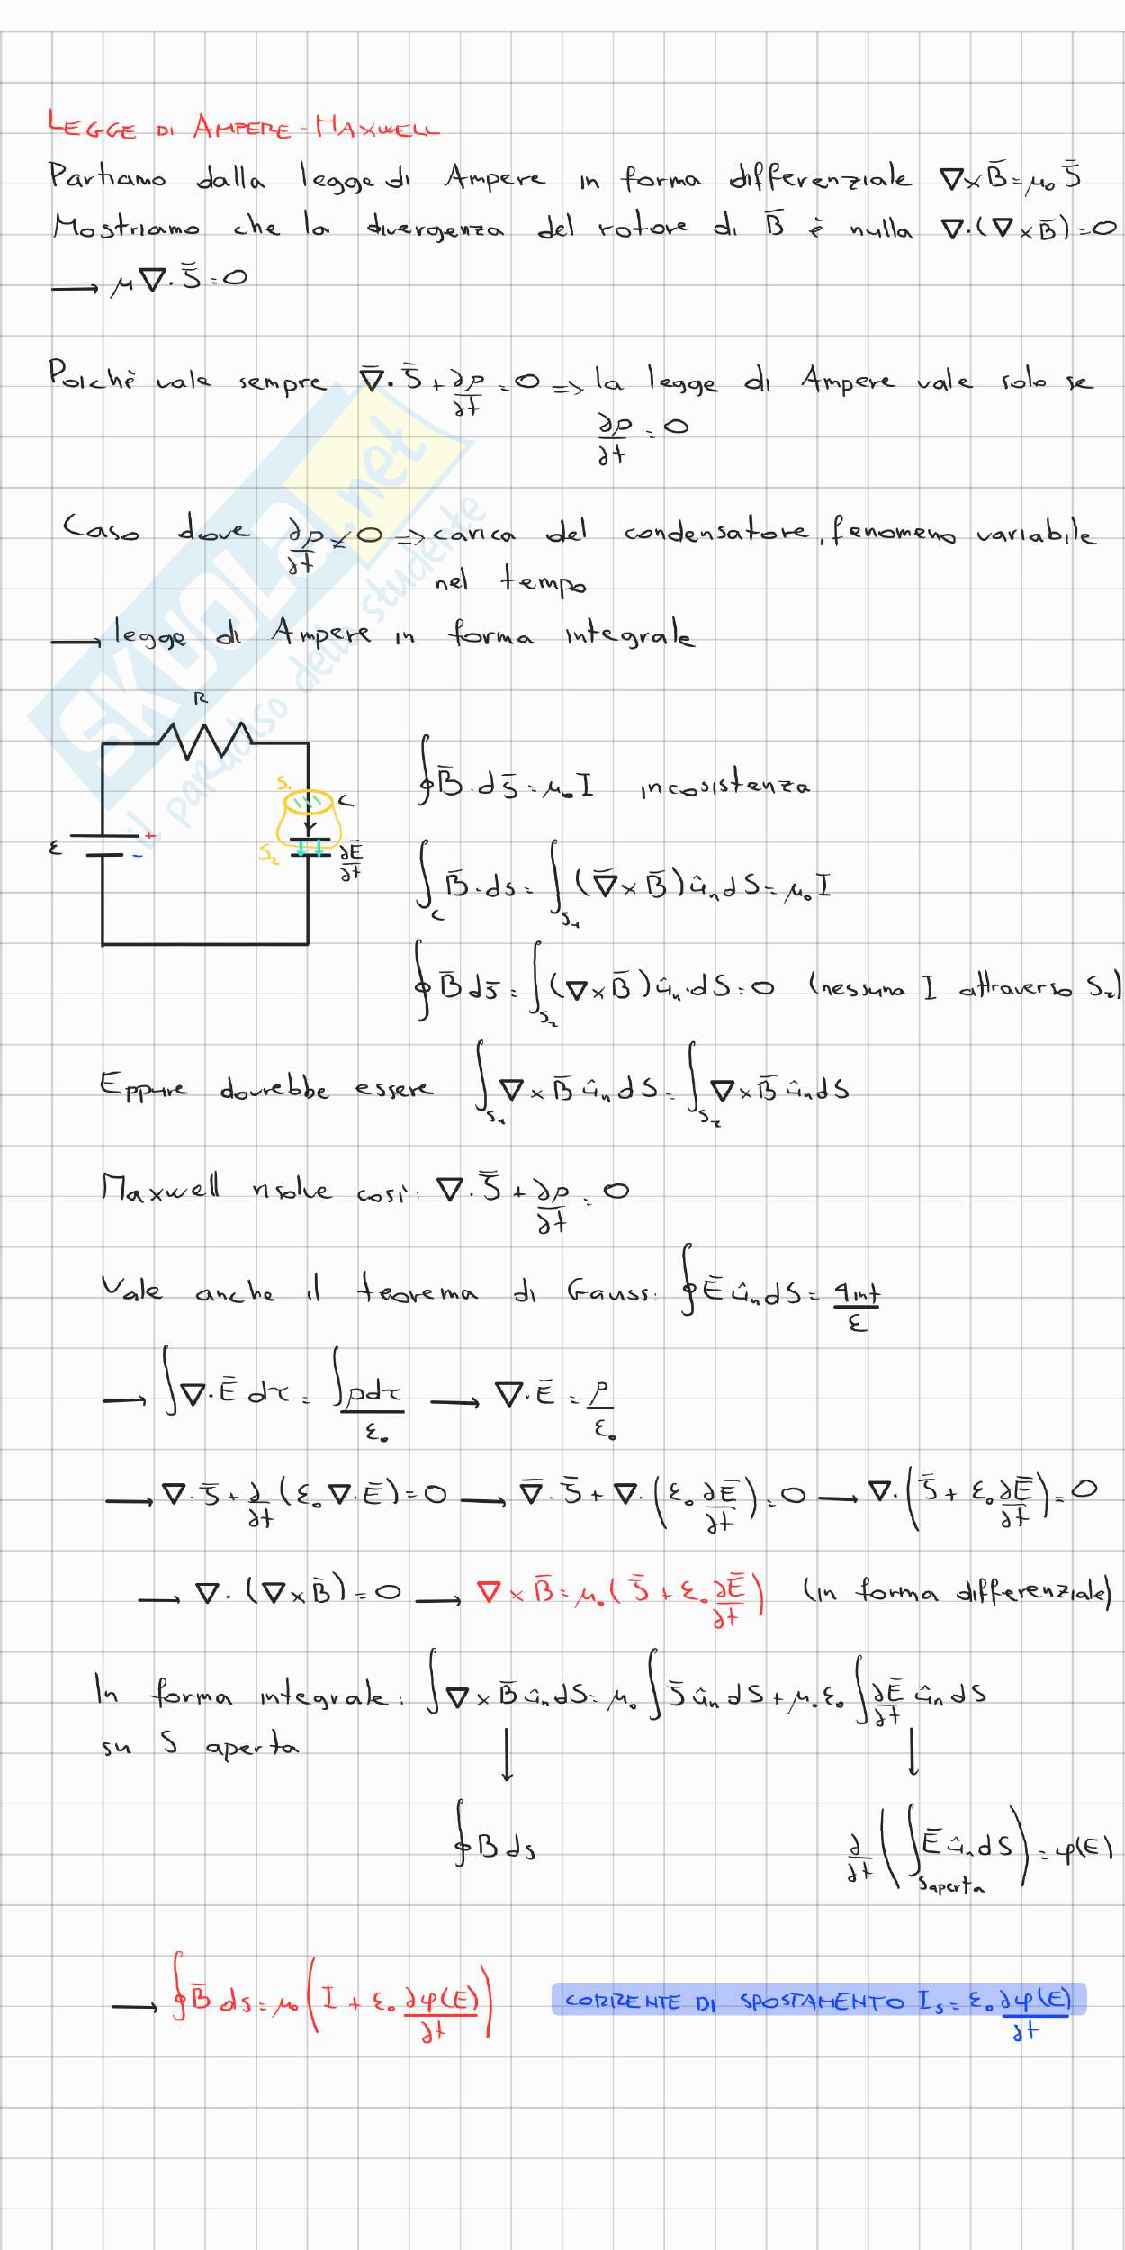 LEGGE DI AMPERE-MAXWELL
Partiamo dalla legge di Ampere in forma differenziale ∇×B̄=μ₀J̄
Mostriamo che la divergenza del rotore di B̄ è nulla ∇·(∇×B̄)=0
→ μ∇·J̄=0
Poichè vale sempre ∇̄·J̄+∂ρ/∂t=0 => la legge di Ampere vale solo se
∂ρ/∂t=0
Caso dove ∂ρ/∂t≠0 => carica del condensatore, fenomeno variabile
nel tempo
→ legge di Ampere in forma integrale
R
S₁
C
ε
+
-
S₂
∂Ē/∂t
∮B̄·ds̄=μ₀I incosistenza
∫_C B̄·ds=∫_S₁(∇̄×B̄)ûₙdS=μ₀I
∮B̄ds̄=∫_S₂(∇×B̄)ûₙ·dS=0 (nessuna I attraverso S₂)
Eppure dovrebbe essere ∫_S₁∇×B̄ûₙdS=∫_S₂∇×B̄ûₙdS
Maxwell risolve così: ∇·J̄+∂ρ/∂t=0
Vale anche il teorema di Gauss: ∮Ēûₙds=qint/ε
→ ∫∇·Ēdτ=∫ρdτ/ε₀ → ∇·Ē=ρ/ε₀
→ ∇·J̄+∂/∂t(ε₀∇·Ē)=0 → ∇̄·J̄+∇·(ε₀∂Ē/∂t)=0 → ∇·(J̄+ε₀∂Ē/∂t)=0
→ ∇·(∇×B̄)=0 → ∇×B̄=μ₀(J̄+ε₀∂Ē/∂t) (in forma differenziale)
In forma integrale: ∫∇×B̄ûₙdS=μ₀∫J̄ûₙdS+μ₀ε₀∫∂Ē/∂t ûₙdS
su S aperta
↓ ↓
∮Bds ∂/∂t(∫_Saperta Ēûₙds)=φ(E)
→ ∮B̄ds=μ₀(I+ε₀∂φ(E)/∂t) CORRENTE DI SPOSTAMENTO Iₛ=ε₀∂φ(E)/∂t
SKUOLA.net
il paradiso dello studente